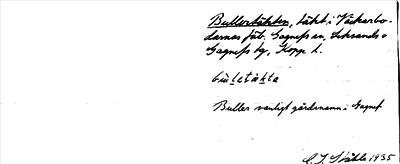 Bullertäkten, täkt i Väckarbo-
darnas fäb. Gagnefs sn, Leksands o
Gagnefs tg, Kopp. l.
bùḷetä̀kta
Buller vanligt gårdsnamn i Gagnef
C. I. Ståhle 1935